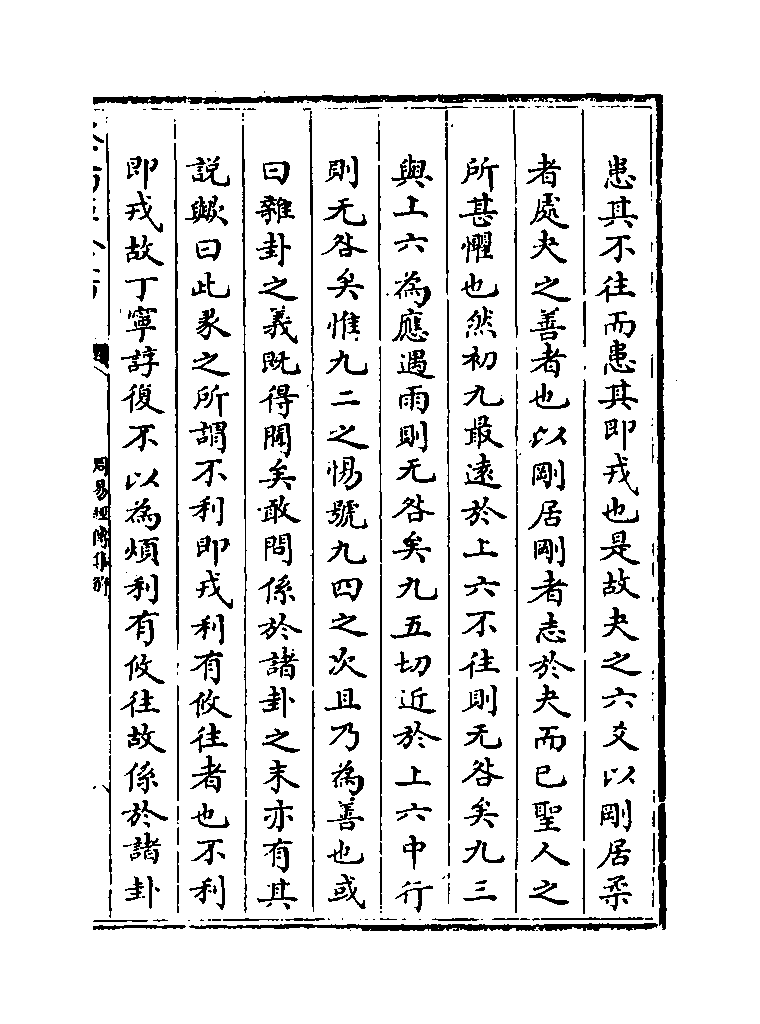 患其不往而患其即戎也是故夬之六爻以剛居柔
者處夬之善者也以剛居剛者志於夬而已聖人之
所甚懼也然初九最遠於上六不往則无咎矣九三
與上六為應遇雨則无咎矣九五切近於上六中行
則无咎矣惟九二之惕號九四之次且乃為善也或
曰雜卦之義既得聞矣敢問係於諸卦之末亦有其
説歟曰此彖之所謂不利即戎利有攸往者也不利
即戎故丁寧諄復不以為煩利有攸往故係於諸卦
周易經傳集解